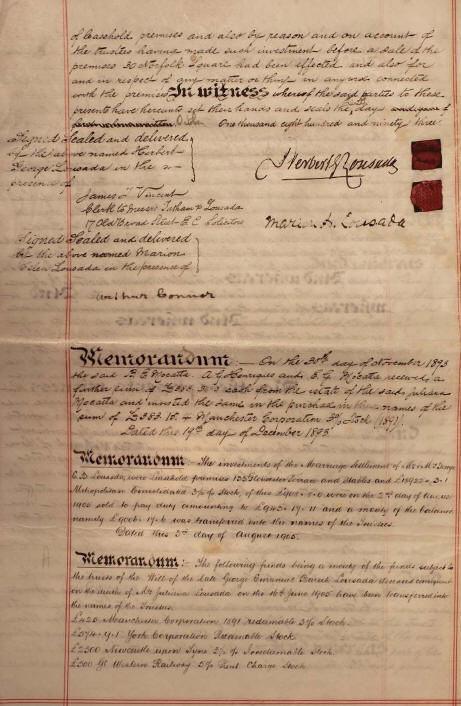 of leasehold premises and also by reason and on account of
the trustees having made such investment before a sale of the
premises 30 Norfolk Square had been effected and also for
and in respect of any matter or thing in anywise connected
with the premises In witness whereof the said parties to these
presents have hereunto set their hands and seals the day
One thousand eight hundred and ninety three
Signed Sealed and delivered
by the above named Herbert
George Lousada in the
presence of
Herbert G Lousada
James Vincent
Clerk to Messrs Tatham & Lousada
17 Old Broad Street E.C. Solicitors
Marion H. Lousada
Signed Sealed and delivered
by the above named Marion
Helen Lousada in the presence of
Arthur Connor
Memorandum :- On the 30th day of November 1893
the said A. G. Henriques and E. G. Mocatta received a
further sum of cash from the estate of the said
Mocatta and invested the same in the purchase in the names of the
sum of £383. 18. 4 Manchester Corporation 3% Stock (1891).
Dated this 19th day of December 1893
Memorandum :- The investments of the Marriage Settlement of Mr & Mrs George
E. B. Lousada were Leasehold premises Gloucester Terrace and Stables and
Metropolitan Consolidated 3½% Stock, of this were on the 2nd day of August
1905 sold to pay duty amounting to £943. 17. 11 and a moiety of the balance
namely was transferred into the names of the Trustees.
Dated this 3rd day of August 1905.
Memorandum :- The following funds being a moiety of the funds subject to
the trusts of the Will of the Late George Emanuel Baruch Lousada deceased consequent
on the death of Mrs Juliana Lousada on the 16th June 1905 have been transferred into
the names of the Trustees.
£420 Manchester Corporation 1891 redeemable 3% Stock
£574. 4. 1 York Corporation Redeemable Stock
£2300 Newcastle upon Tyne Irredeemable Stock
£500 Gt Western Railway 5% Rent Charge Stock